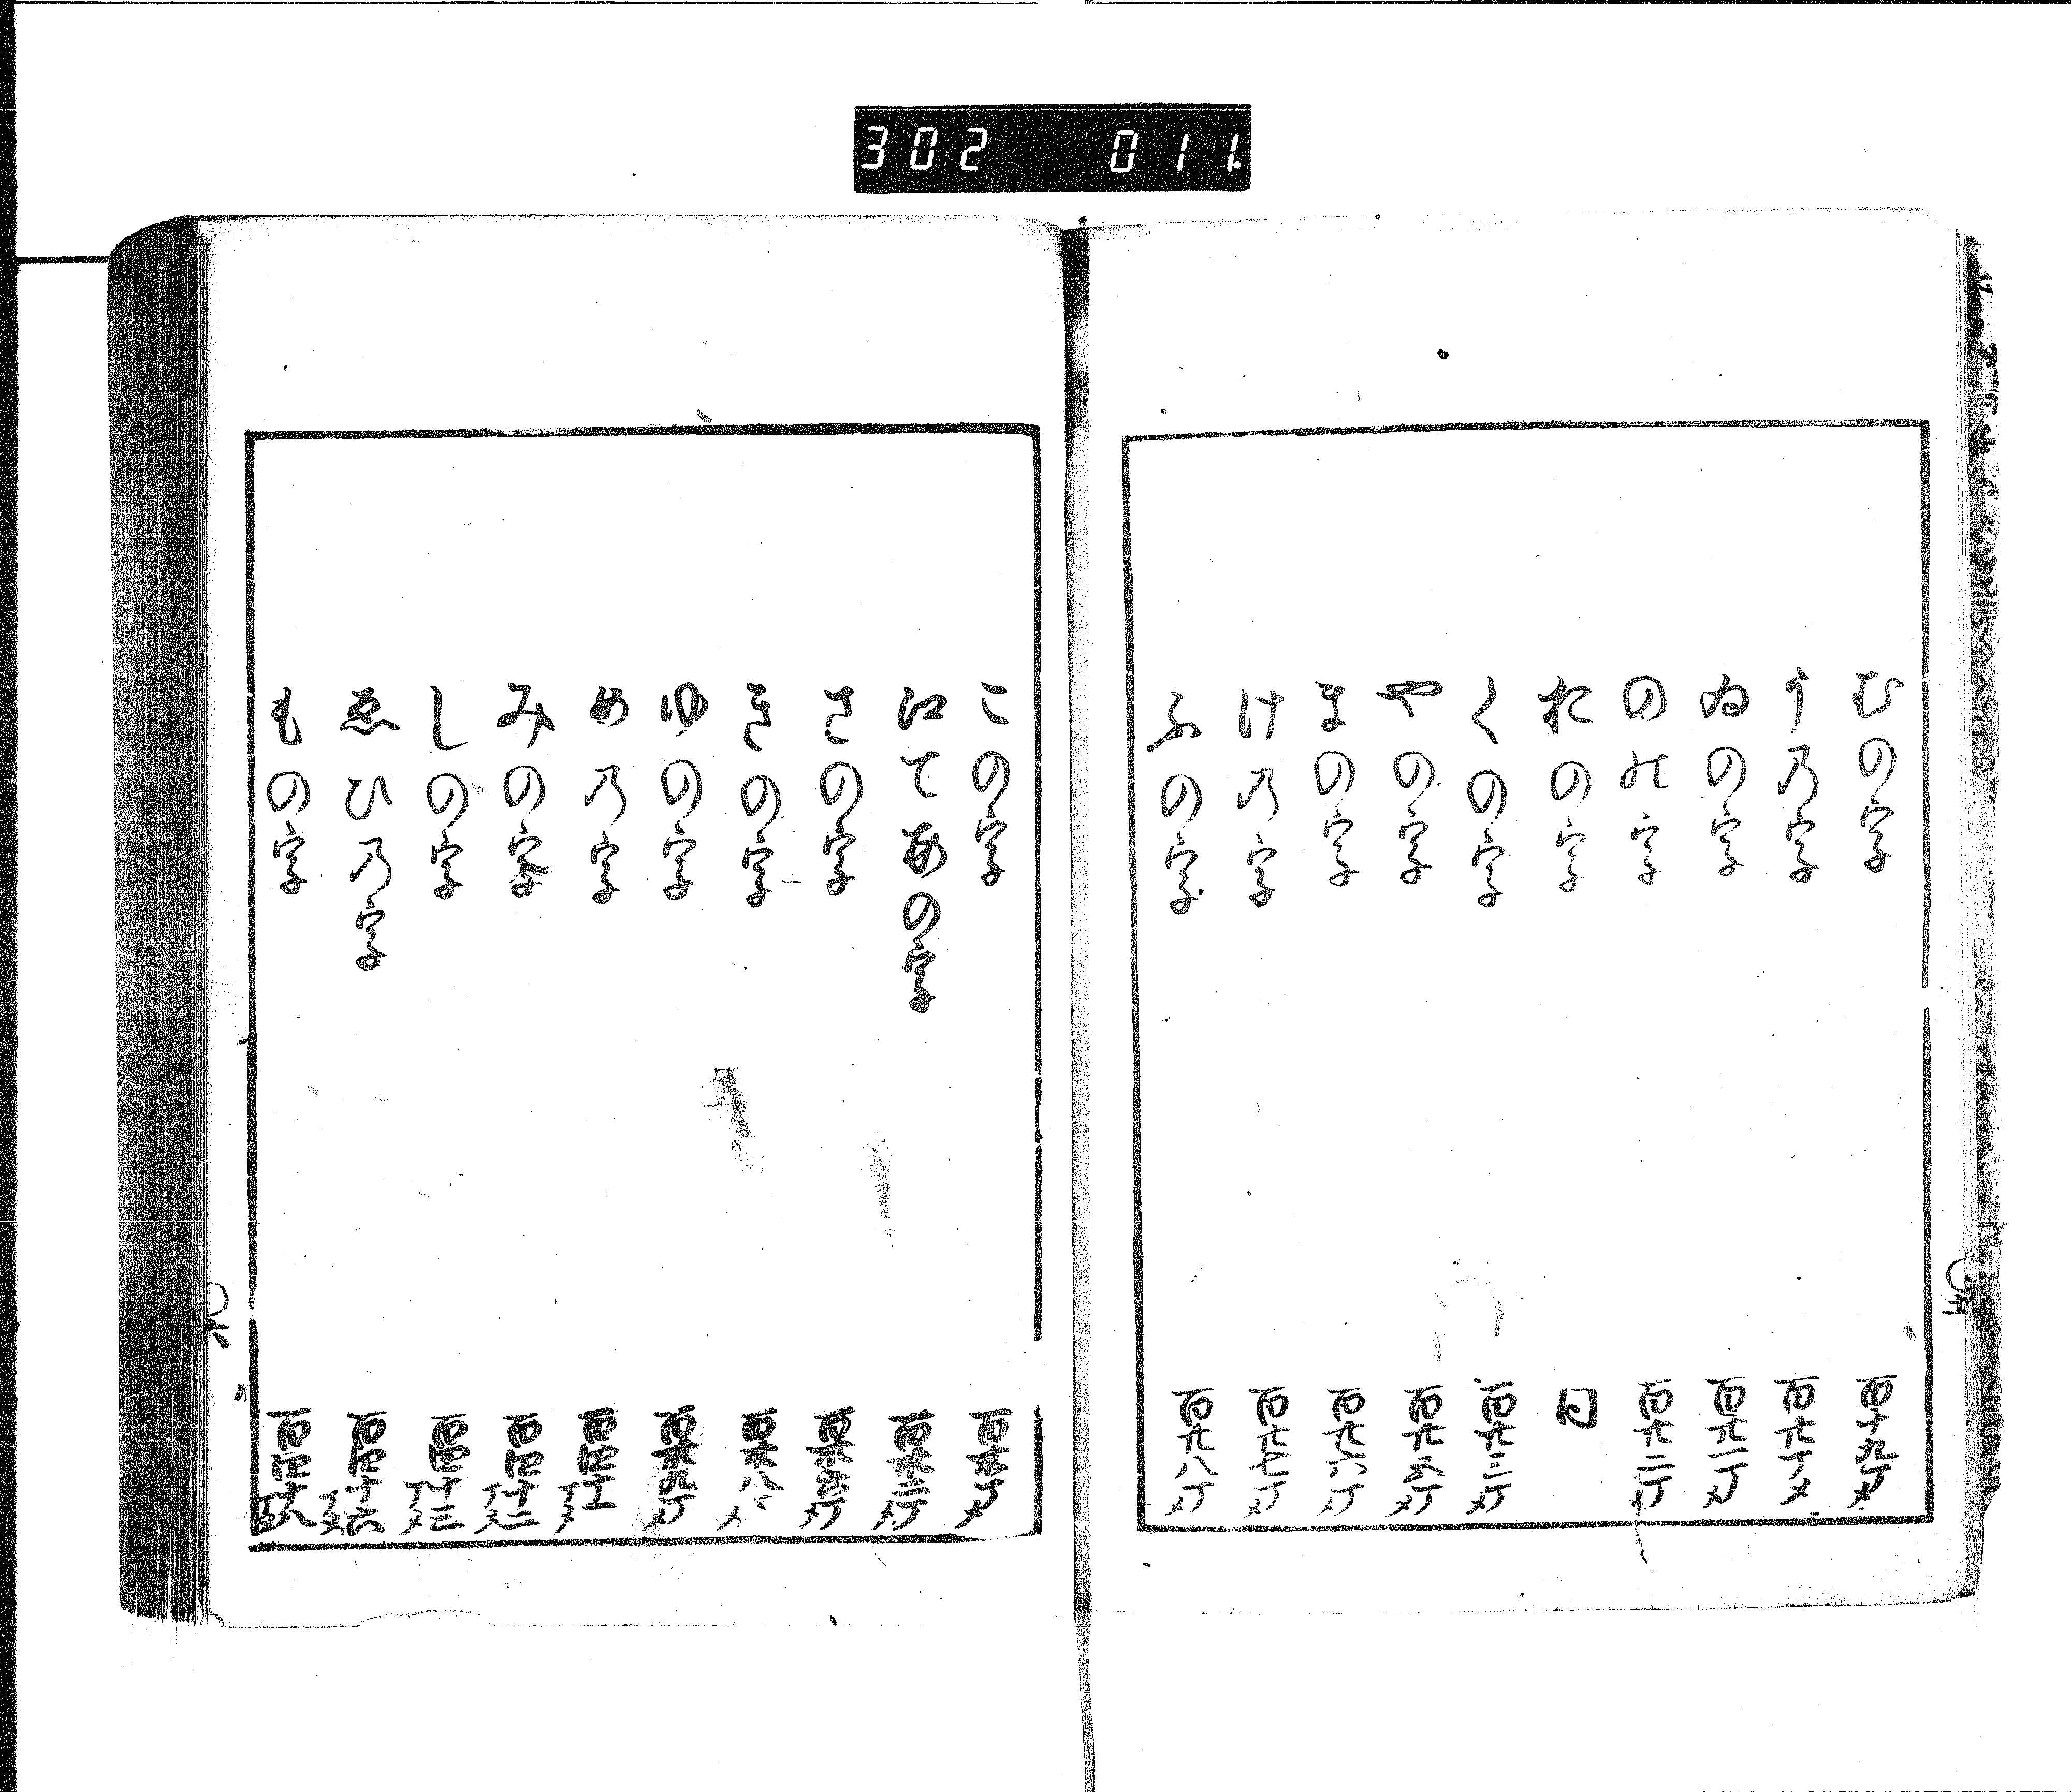 302 011
むの字 百十九丁メ
う乃字 百廿丁メ
ゐの字 百廿一丁メ
のの字 百廿二丁
おの字 同
くの字 百廿三丁メ
やの字 百廿五丁メ
まの字 百廿六丁メ
け乃字 百廿七丁メ
ふの字 百廿八丁メ
この字 百卅丁メ
江てあの字 百卅三丁メ
さの字 百卅六丁メ
きの字 百卅八丁メ
ゆの字 百卅九丁メ
め乃字 百四十一丁メ
みの字 百四十二丁メ
しの字 百四十三丁メ
ゑひ乃字 百四十六丁メ
もの字 百四十八丁メ